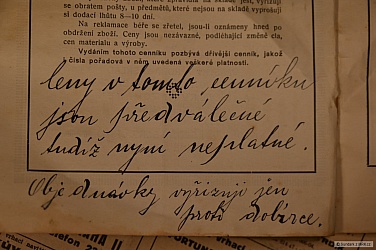 se obratem pošty, u předmětů, které nejsou na skladě vyprošuji
si dodací lhůtu 8—10 dní.
Na reklamace běře se zřetel, jsou-li oznámeny hned po
obdržení zboží. Ceny jsou nezávazné, podléhající změně cla,
cen materialu a výroby.
Vydáním tohoto cenníku pozbývá dřívější cenník, jakož
i čísla pořadová v něm uvedená veškeré platnosti.
Ceny v tomto cenníku
jsou předválečné
tudíž nyní neplatné.
Objednávky vyřizuji jen
proti dobírce.